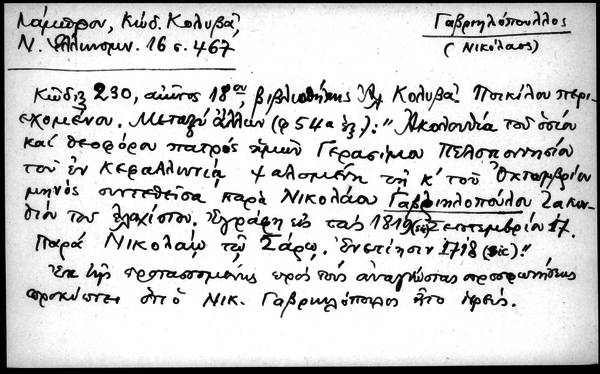 Λάμπρου, Κώδ. Κολυβᾶ,
Γαβριηλόπουλος
Ν. Ἑλληνομν. 16 σ. 467
(Νικόλαος)
Κῶδιξ 230, αἰῶνος 18ου, βιβλιοθήκης Ἀλ. Κολυβᾶ. Ποικίλου περι-
εχομένου. Μεταξὺ ἄλλων (φ 54α ἑξ.): "Ἀκολουθία τοῦ ὁσίου
καὶ θεοφόρου πατρὸς ἡμῶν Γερασίμου Πελοπονησίου
τοῦ ἐν Κεφαλληνίᾳ ψαλομένη τῇ κ' τοῦ Ὀκτωμβρίου
μηνὸς συντεθεῖσα παρὰ Νικολάου Γαβριηλοπούλου Ζακυν-
θίου τοῦ ἐλαχίστου. Ἐγράφη εἰς τὰς 1819 (sic) Σεπτεμβρίου 17.
παρὰ Νικολάῳ τῷ Σάρῳ. Ἐνετίησιν 1718 (sic)."
Ἐκ τῆς προτασσομένης πρὸς τοὺς ἀναγνώστας προσφωνήσεως
προκύπτει ὅτι ὁ Νικ. Γαβριηλόπουλος ἦτο ἱερεύς.